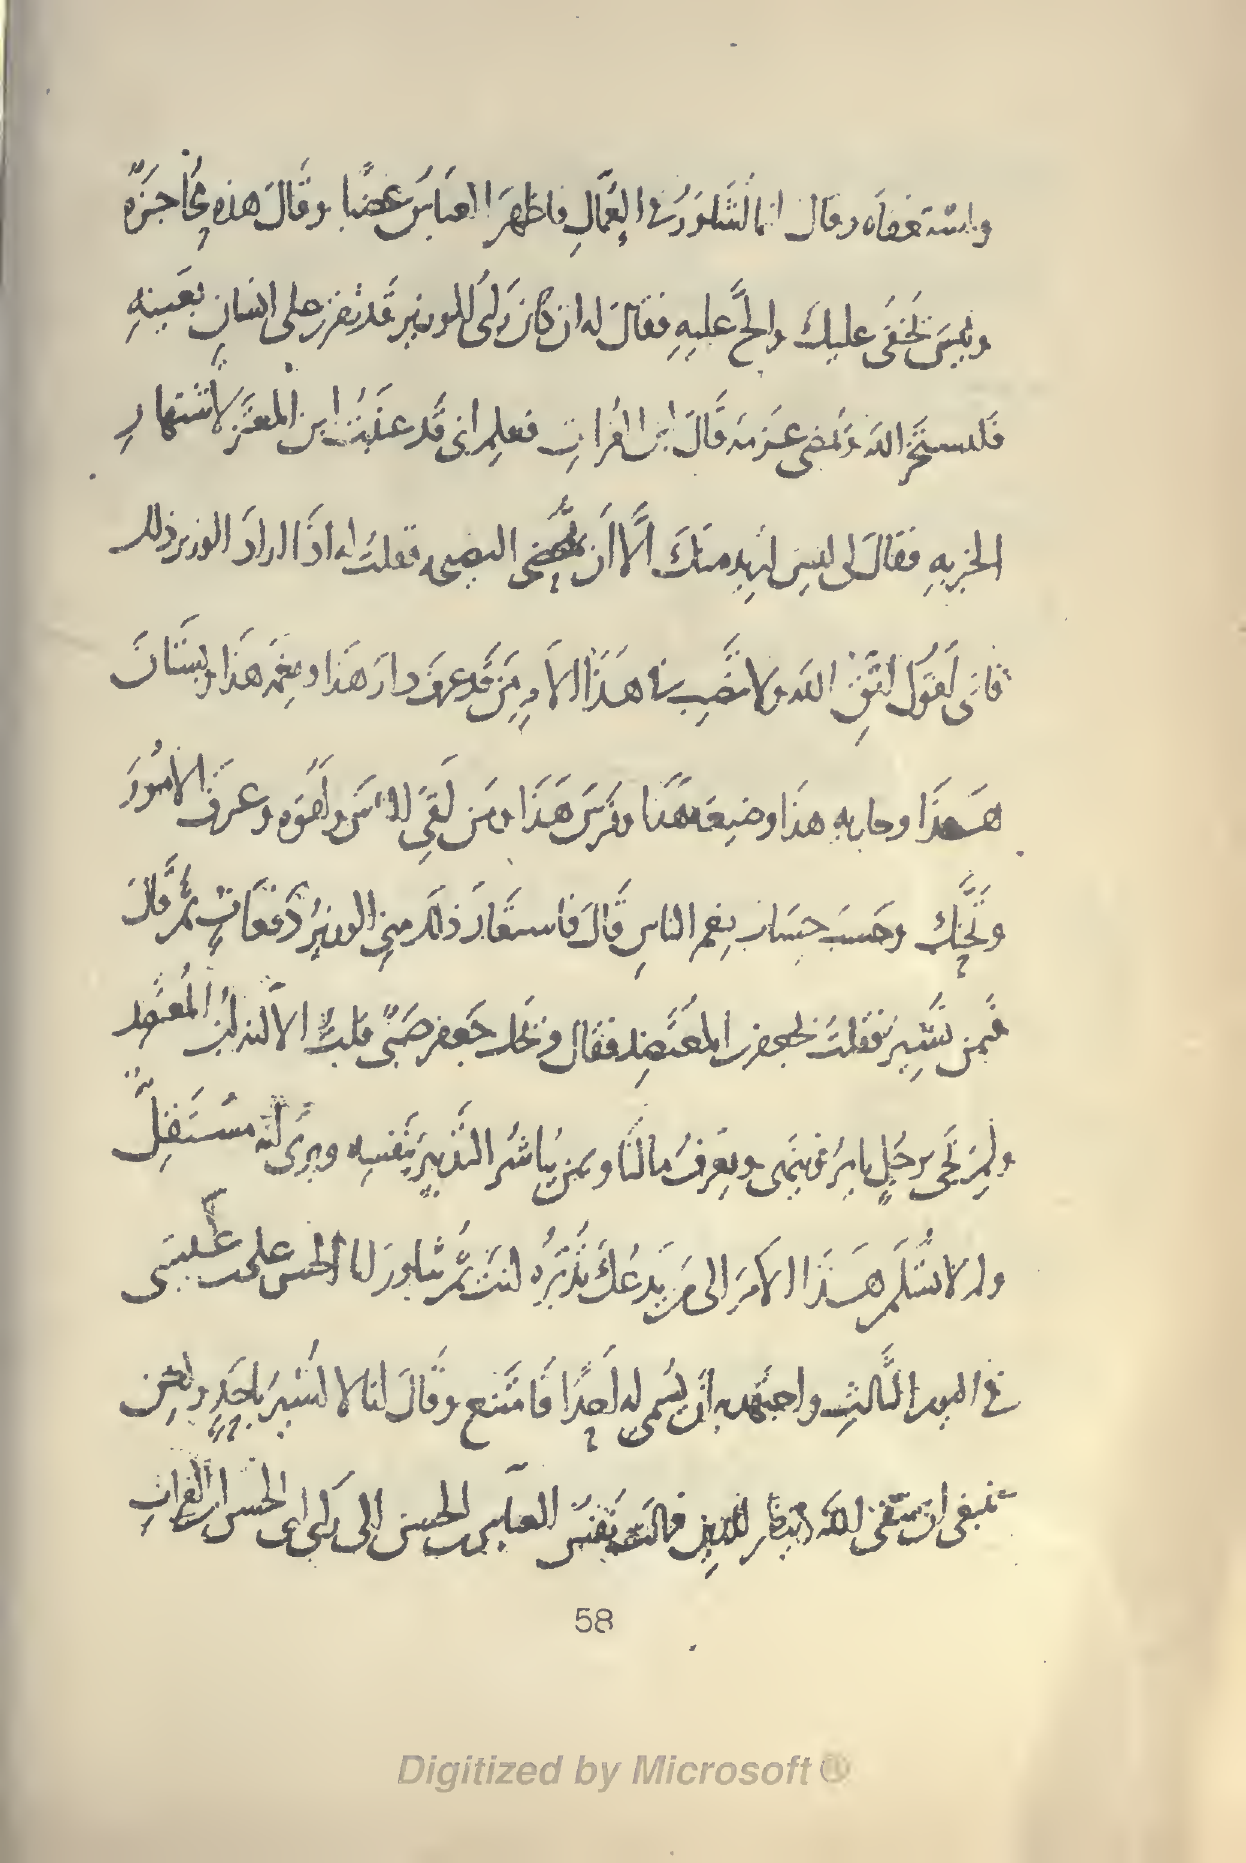 واستعفاه وقال انما نشاور في العمال فاظهر العباس غضبا وقال هذه محاجزة
وليس يخفى عليك والح عليه فقال له ان كان رأي الوزير قد تقرر على انسان بعينه
فليستخر الله ويمضي عزمه قال ابن الفرات فعلم اني قد عنيت ابن المعتز لاشتهار
الخبر به فقال لي ليس اريد منك الا ان تمحضني النصيحة فقلت له اذا اراد الوزير ذلك
فاني اقول اتق الله ولا تنصب في هذا الامر من قد عرف دار هذا ونعمة هذا وبستان
هذا وجارية هذا وضيعة هذا وفرس هذا ومن لقي الناس ولقوه وعرف الامور
وتحنك وحسب حساب نعم الناس قال فاستعاد ذلك مني الوزير دفعات ثم قال
فبمن تشير فقلت بجعفر بن المعتضد فقال ويحك جعفر صبي قلت الا انه ابن المعتضد
ولم نجئ برجل يأمر وينهى ويعرف ما لنا ومن يباشر التدبير بنفسه ويرى انه مستقل
ولم لا تسلم هذا الامر الى من يدعك تدبره انت ثم شاور ابا الحسن علي بن عيسى
في اليوم الثالث واجتهد به ان يسمي له احدا فامتنع وقال انا لا اشير باحد ولكن
ينبغي ان يتقى الله وينظر للدين فمالت نفس العباس بن الحسن الى رأي ابي الحسن ابن الفرات
58
Digitized by Microsoft ®